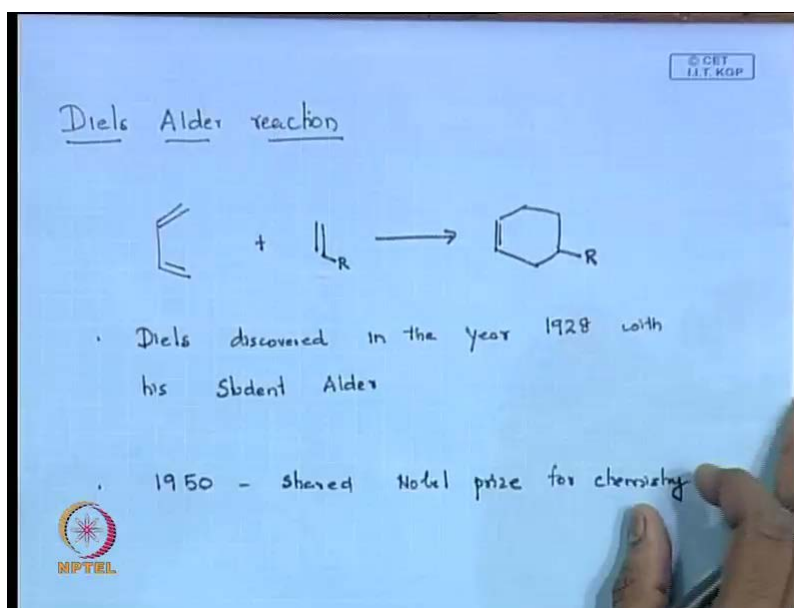 © CET
I.I.T. KGP
Diels Alder reaction
+
R
R
. Diels discovered in the year 1928 with
his Student Alder
. 1950 - Shared Nobel prize for chemistry
NPTEL